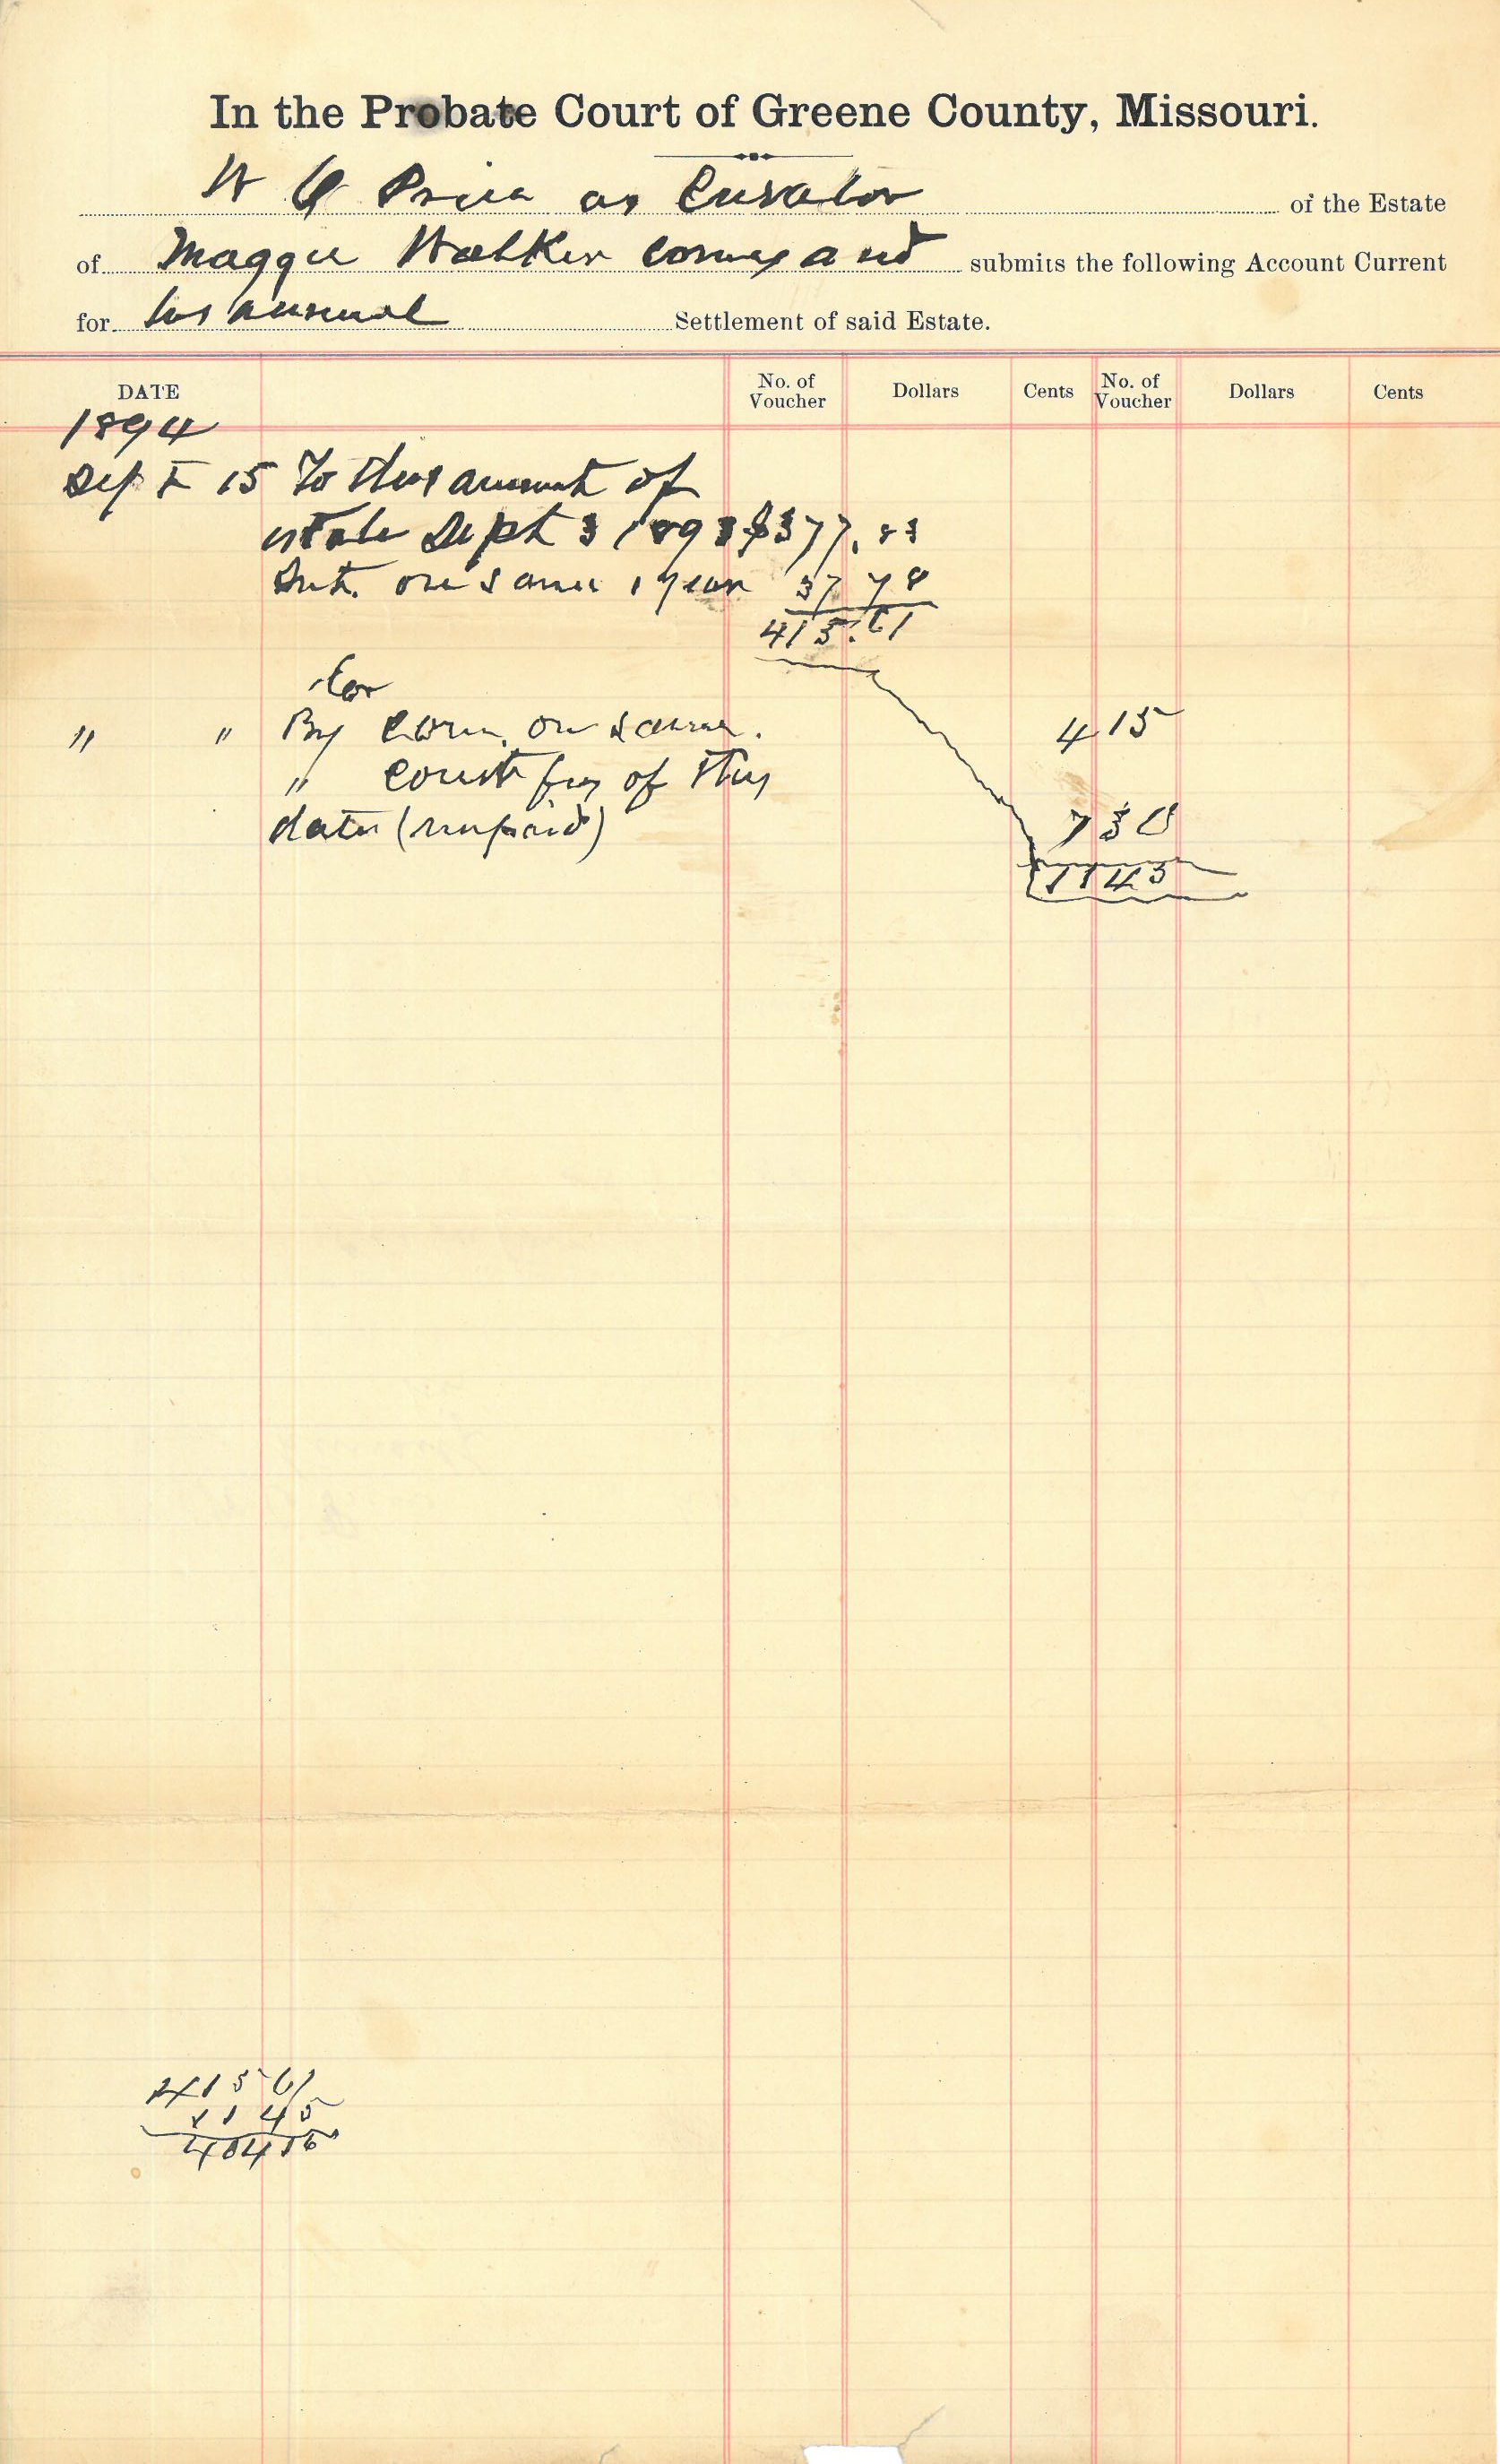 In the Probate Court of Greene County, Missouri.
W C Price as Curator of the Estate
of Maggie Walker comes and submits the following Account Current
for his annual Settlement of said Estate.
DATE No. of Voucher Dollars Cents No. of Voucher Dollars Cents
1894
Sept 15 To this amount of
estate Sept 3 1893 $377.83
Int. on same 1 year 37 78
415.61
Cr
" " By com. on same. 4 15
" court fees of this
date (unpaid) 7 30
11 45
415 61
11 45
404 16